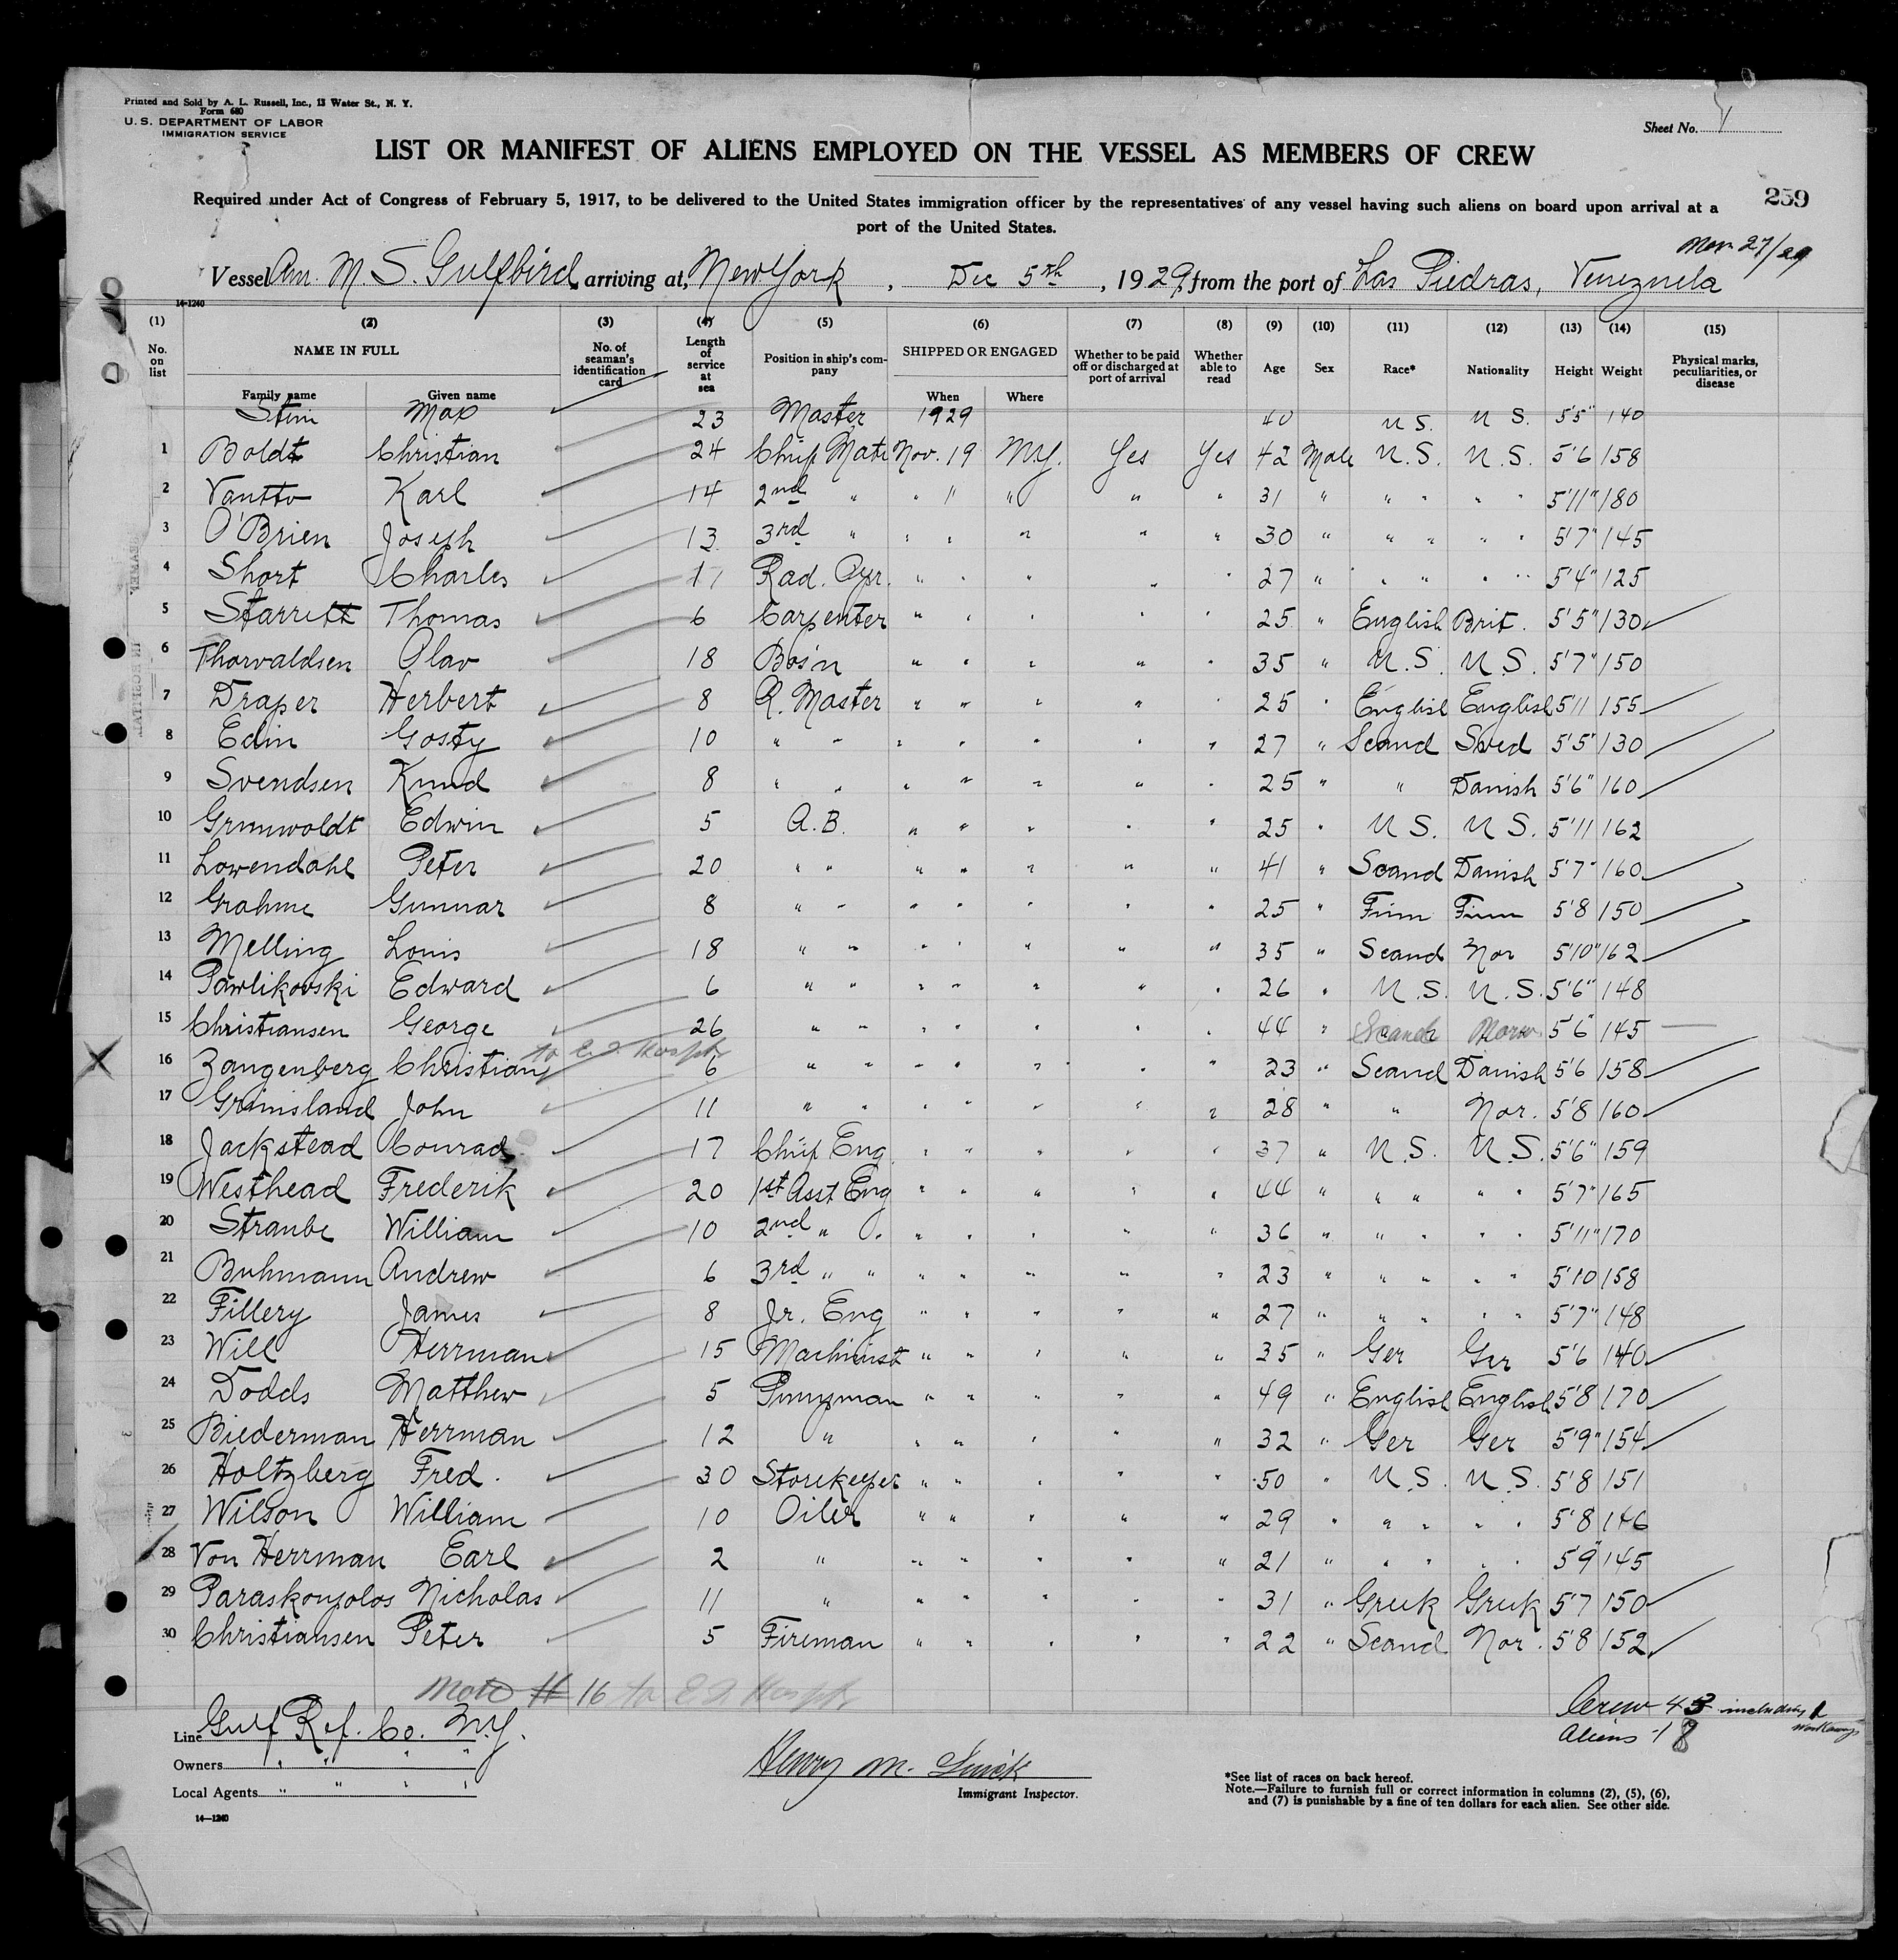 Printed and Sold by A. L. Russell, Inc., 13 Water St., N. Y.
Form 680
U. S. DEPARTMENT OF LABOR
IMMIGRATION SERVICE
Sheet No. 1
LIST OR MANIFEST OF ALIENS EMPLOYED ON THE VESSEL AS MEMBERS OF CREW
259
Required under Act of Congress of February 5, 1917, to be delivered to the United States immigration officer by the representatives of any vessel having such aliens on board upon arrival at a
port of the United States.
Nov 27/29
Vessel Am. M. S. Gulfbird arriving at, New York, Dec 5th, 1929, from the port of Las Piedras, Venezuela
14-1240
(1) (2) (3) (4) (5) (6) (7) (8) (9) (10) (11) (12) (13) (14) (15)
No. on list NAME IN FULL No. of seaman's identification card Length of service at sea Position in ship's company SHIPPED OR ENGAGED Whether to be paid off or discharged at port of arrival Whether able to read Age Sex Race* Nationality Height Weight Physical marks, peculiarities, or disease
Family name Given name When Where
Stein Max 23 Master 1929 40 U S. U S. 5'5" 140
1 Boldt Christian 24 Chief Mate Nov. 19 N.Y. Yes Yes 42 Male U.S. U.S. 5'6 158
2 Vantto Karl 14 2nd " " " " " " 31 " " " " " 5'11" 180
3 O'Brien Joseph 13 3rd " " " " " " 30 " " " " " 5'7" 145
4 Short Charles 11 Rad. Opr. " " " " " 27 " " " " " 5'4" 125
5 Starrett Thomas 6 Carpenter " " " " " 25 " English Brit. 5'5" 130
6 Thorvaldsen Olav 18 Bos'n " " " " " 35 " U.S. U.S. 5'7" 150
7 Draper Herbert 8 Q. Master " " " " " 25 " English English 5'11 155
8 Edin Gosty 10 " " " " " " " 27 " Scand Swed 5'5" 130
9 Svendsen Knud 8 " " " " " " " 25 " " Danish 5'6" 160
10 Grunwoldt Edwin 5 A.B. " " " " " 25 " U S. U S. 5'11 162
11 Lowendahl Peter 20 " " " " " " " 41 " Scand Danish 5'7" 160
12 Grahme Gunnar 8 " " " " " " " 25 " Finn Finn 5'8 150
13 Melling Louis 18 " " " " " " " 35 " Scand Nor 5'10" 162
14 Pawlikovski Edward 6 " " " " " " " 26 " U.S. U.S. 5'6" 148
15 Christiansen George 26 " " " " " " " 44 " Scand Norw. 5'6" 145
to E.I. Hospt
16 Zangenberg Christian 6 " " " " " " " 23 " Scand Danish 5'6 158
17 Grimsland John 11 " " " " " " " 28 " " Nor. 5'8 160
18 Jackstead Conrad 17 Chief Eng. " " " " " 37 " U.S. U.S. 5'6" 159
19 Westhead Frederik 20 1st Asst Eng " " " " " 44 " " " " " 5'7" 165
20 Straube William 10 2nd " " " " " " " 36 " " " " " 5'11" 170
21 Buhmann Andrew 6 3rd " " " " " " " 23 " " " " " 5'10 158
22 Fillery James 8 Jr. Eng " " " " " 27 " " " " " 5'7" 148
23 Will Herrman 15 Machinist " " " " " 35 " Ger Ger 5'6 140
24 Dodds Matthew 5 Pumpman " " " " " 49 " English English 5'8 170
25 Biederman Herrman 12 " " " " " " 32 " Ger Ger 5'9" 154
26 Holtzberg Fred. 30 Storekeeper " " " " " 50 " U.S. U.S. 5'8 151
27 Wilson William 10 Oiler " " " " " 29 " " " " " 5'8 146
28 Von Herrman Earl 2 " " " " " " 21 " " " " " 5'9" 145
29 Paraskopolos Nicholas 11 " " " " " " 31 " Greek Greek 5'7 150
30 Christiansen Peter 5 Fireman " " " " " 22 " Scand Nor. 5'8 152
Note # 16 to E I Hospt
Crew 43 including 1 workaway
Aliens 18
Line Gulf Ref. Co. N.Y.
Owners " " " "
Local Agents " " " "
Henry M.
Immigrant Inspector.
*See list of races on back hereof.
Note.—Failure to furnish full or correct information in columns (2), (5), (6),
and (7) is punishable by a fine of ten dollars for each alien. See other side.
14—1240